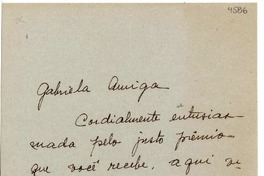 4586
Gabriela Amiga
Cordialmente entusias
mada pelo justo prêmio
que você recebe, aqui ve